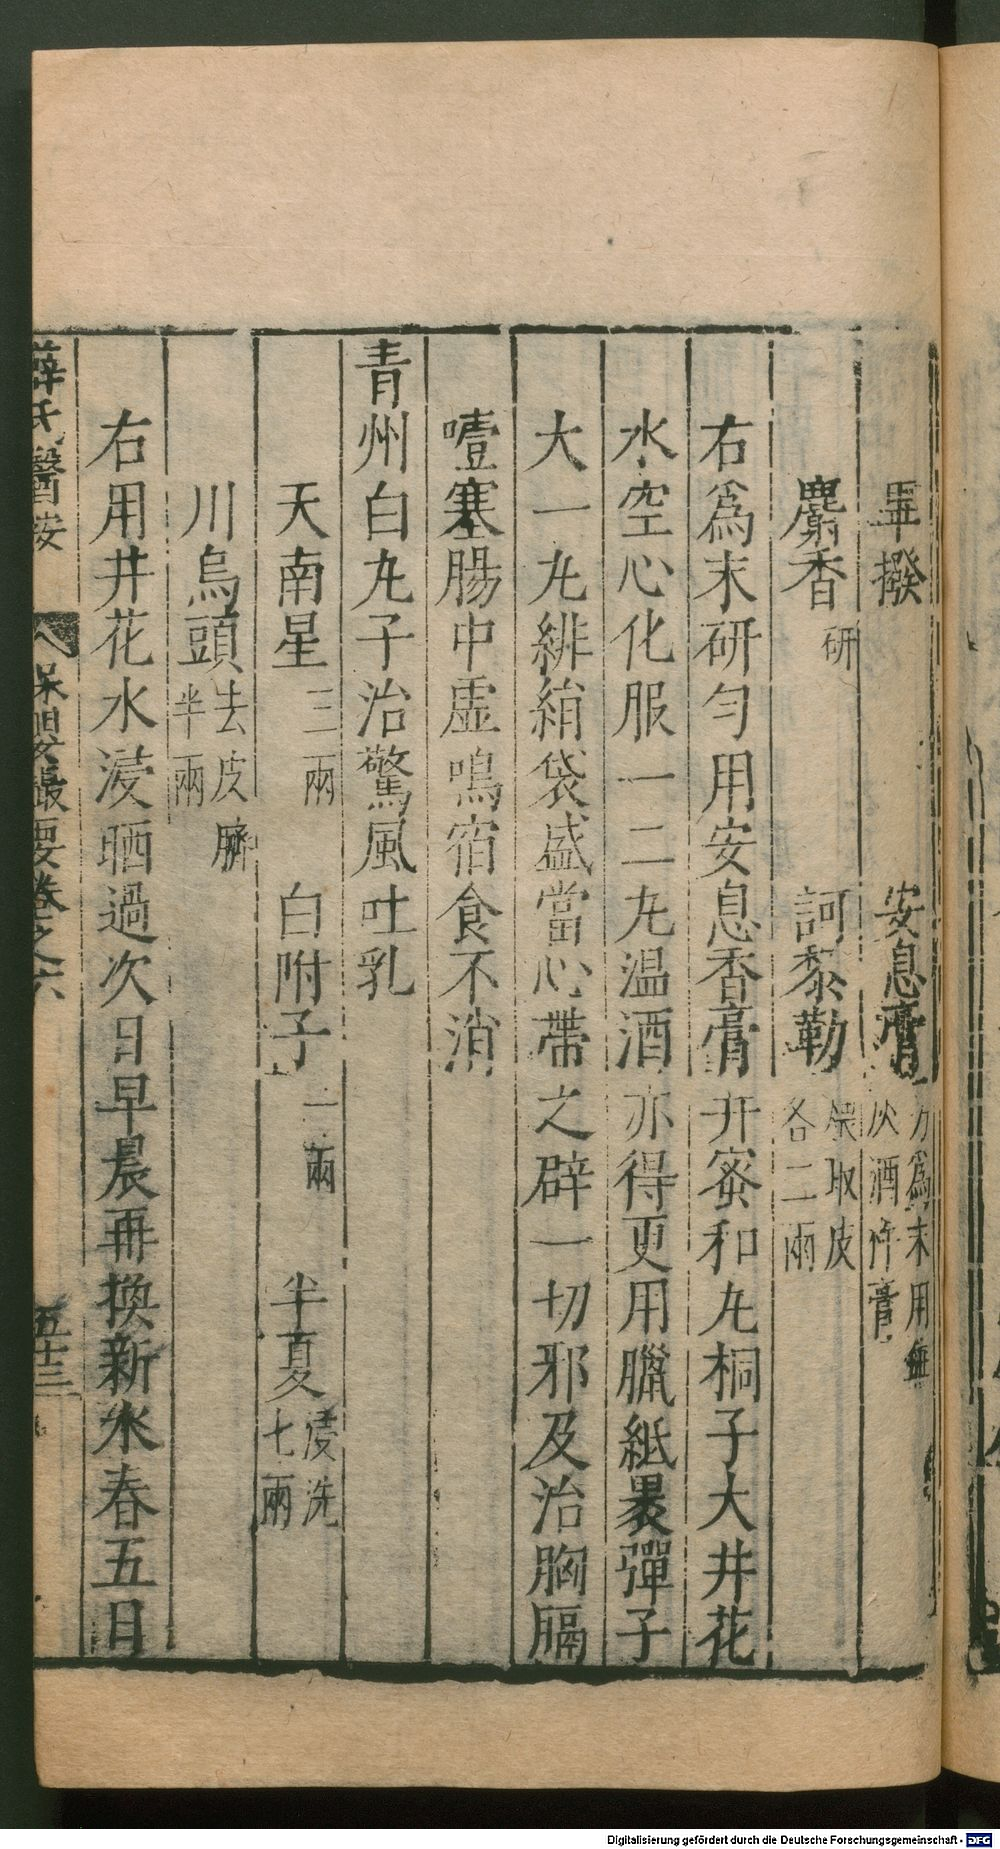 蓽撥 安息膏 另爲末用無灰酒作膏
麝香 研 訶黎勒 煨取皮各二兩
右爲末研勻用安息香膏幷蜜和丸桐子大井花
水空心化服一二丸温酒亦得更用臘紙裹彈子
大一丸緋絹袋盛當心帶之辟一切邪及治胸膈
噎塞腸中虚鳴宿食不消
青州白丸子治驚風吐乳
天南星 三兩 白附子 二兩 半夏 浸洗七兩
川烏頭 去皮臍半兩
右用井花水浸晒過次日早晨再換新水春五日
薛氏醫按 保嬰撮要卷之六 五十三
Digitalisierung gefördert durch die Deutsche Forschungsgemeinschaft - DFG